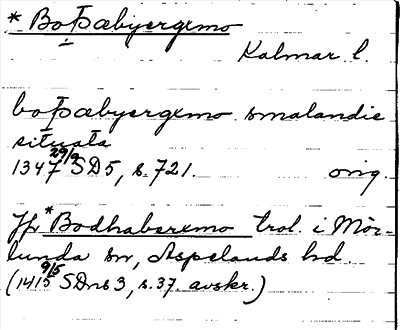 * Boþæbyergxmo
Kalmar l.
boþæbyergxmo smalandie
situata
1347 29/9 SD5, s. 721. orig.
Jfr *Bodhaberxmo trol. i Mör-
lunda sn, Aspelands hd.
(1415 9/5 SDns 3, s. 37. avskr.)